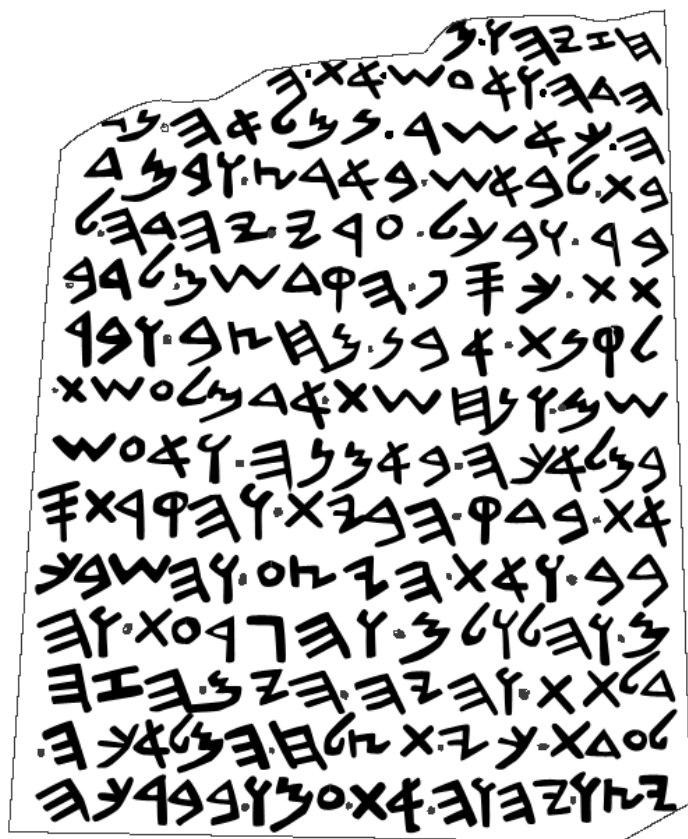 𐤇𐤆𐤉𐤄𐤅.𐤌
𐤄𐤃𐤄.𐤅𐤀𐤏𐤔.𐤀𐤕.𐤄
𐤄.𐤊𐤀𐤔𐤓.𐤍𐤌𐤋𐤀𐤄.𐤍𐤃
𐤁𐤕.𐤋𐤁𐤀𐤔.𐤁𐤀𐤓𐤑.𐤅𐤁𐤌𐤃
𐤁𐤓.𐤅𐤁𐤊𐤋.𐤏𐤓𐤉.𐤉𐤄𐤃𐤄.𐤋
𐤕𐤕.𐤊𐤎𐤐.𐤄𐤒𐤃𐤔𐤌.𐤋𐤓𐤁
𐤋𐤒𐤍𐤕.𐤀𐤁𐤍.𐤌𐤇𐤑𐤁.𐤅𐤁𐤓
𐤔𐤌.𐤅𐤍𐤇𐤔𐤕.𐤀𐤃𐤌.𐤋𐤏𐤔𐤕.
𐤁𐤌𐤋𐤀𐤊𐤄.𐤁𐤀𐤌𐤍𐤄.𐤅𐤀𐤏𐤔
𐤀𐤕.𐤁𐤃𐤒.𐤄𐤁𐤉𐤕.𐤅𐤄𐤒𐤓𐤕.𐤎
𐤁𐤁.𐤅𐤀𐤕.𐤄𐤉𐤑𐤏.𐤅𐤄𐤔𐤁𐤊
𐤌.𐤅𐤄𐤋𐤅𐤋𐤌.𐤅𐤄𐤂𐤓𐤏𐤕.𐤅𐤄
𐤃𐤋𐤕𐤕.𐤅𐤄𐤉𐤄.𐤄𐤉𐤌.𐤄𐤆𐤄
𐤋𐤏𐤃𐤕.𐤊𐤉.𐤕𐤑𐤋𐤇.𐤄𐤌𐤋𐤀𐤊𐤄.
𐤉𐤑𐤅.𐤉𐤄𐤅𐤄.𐤀𐤕.𐤏𐤌𐤅.𐤁𐤁𐤓𐤊𐤄